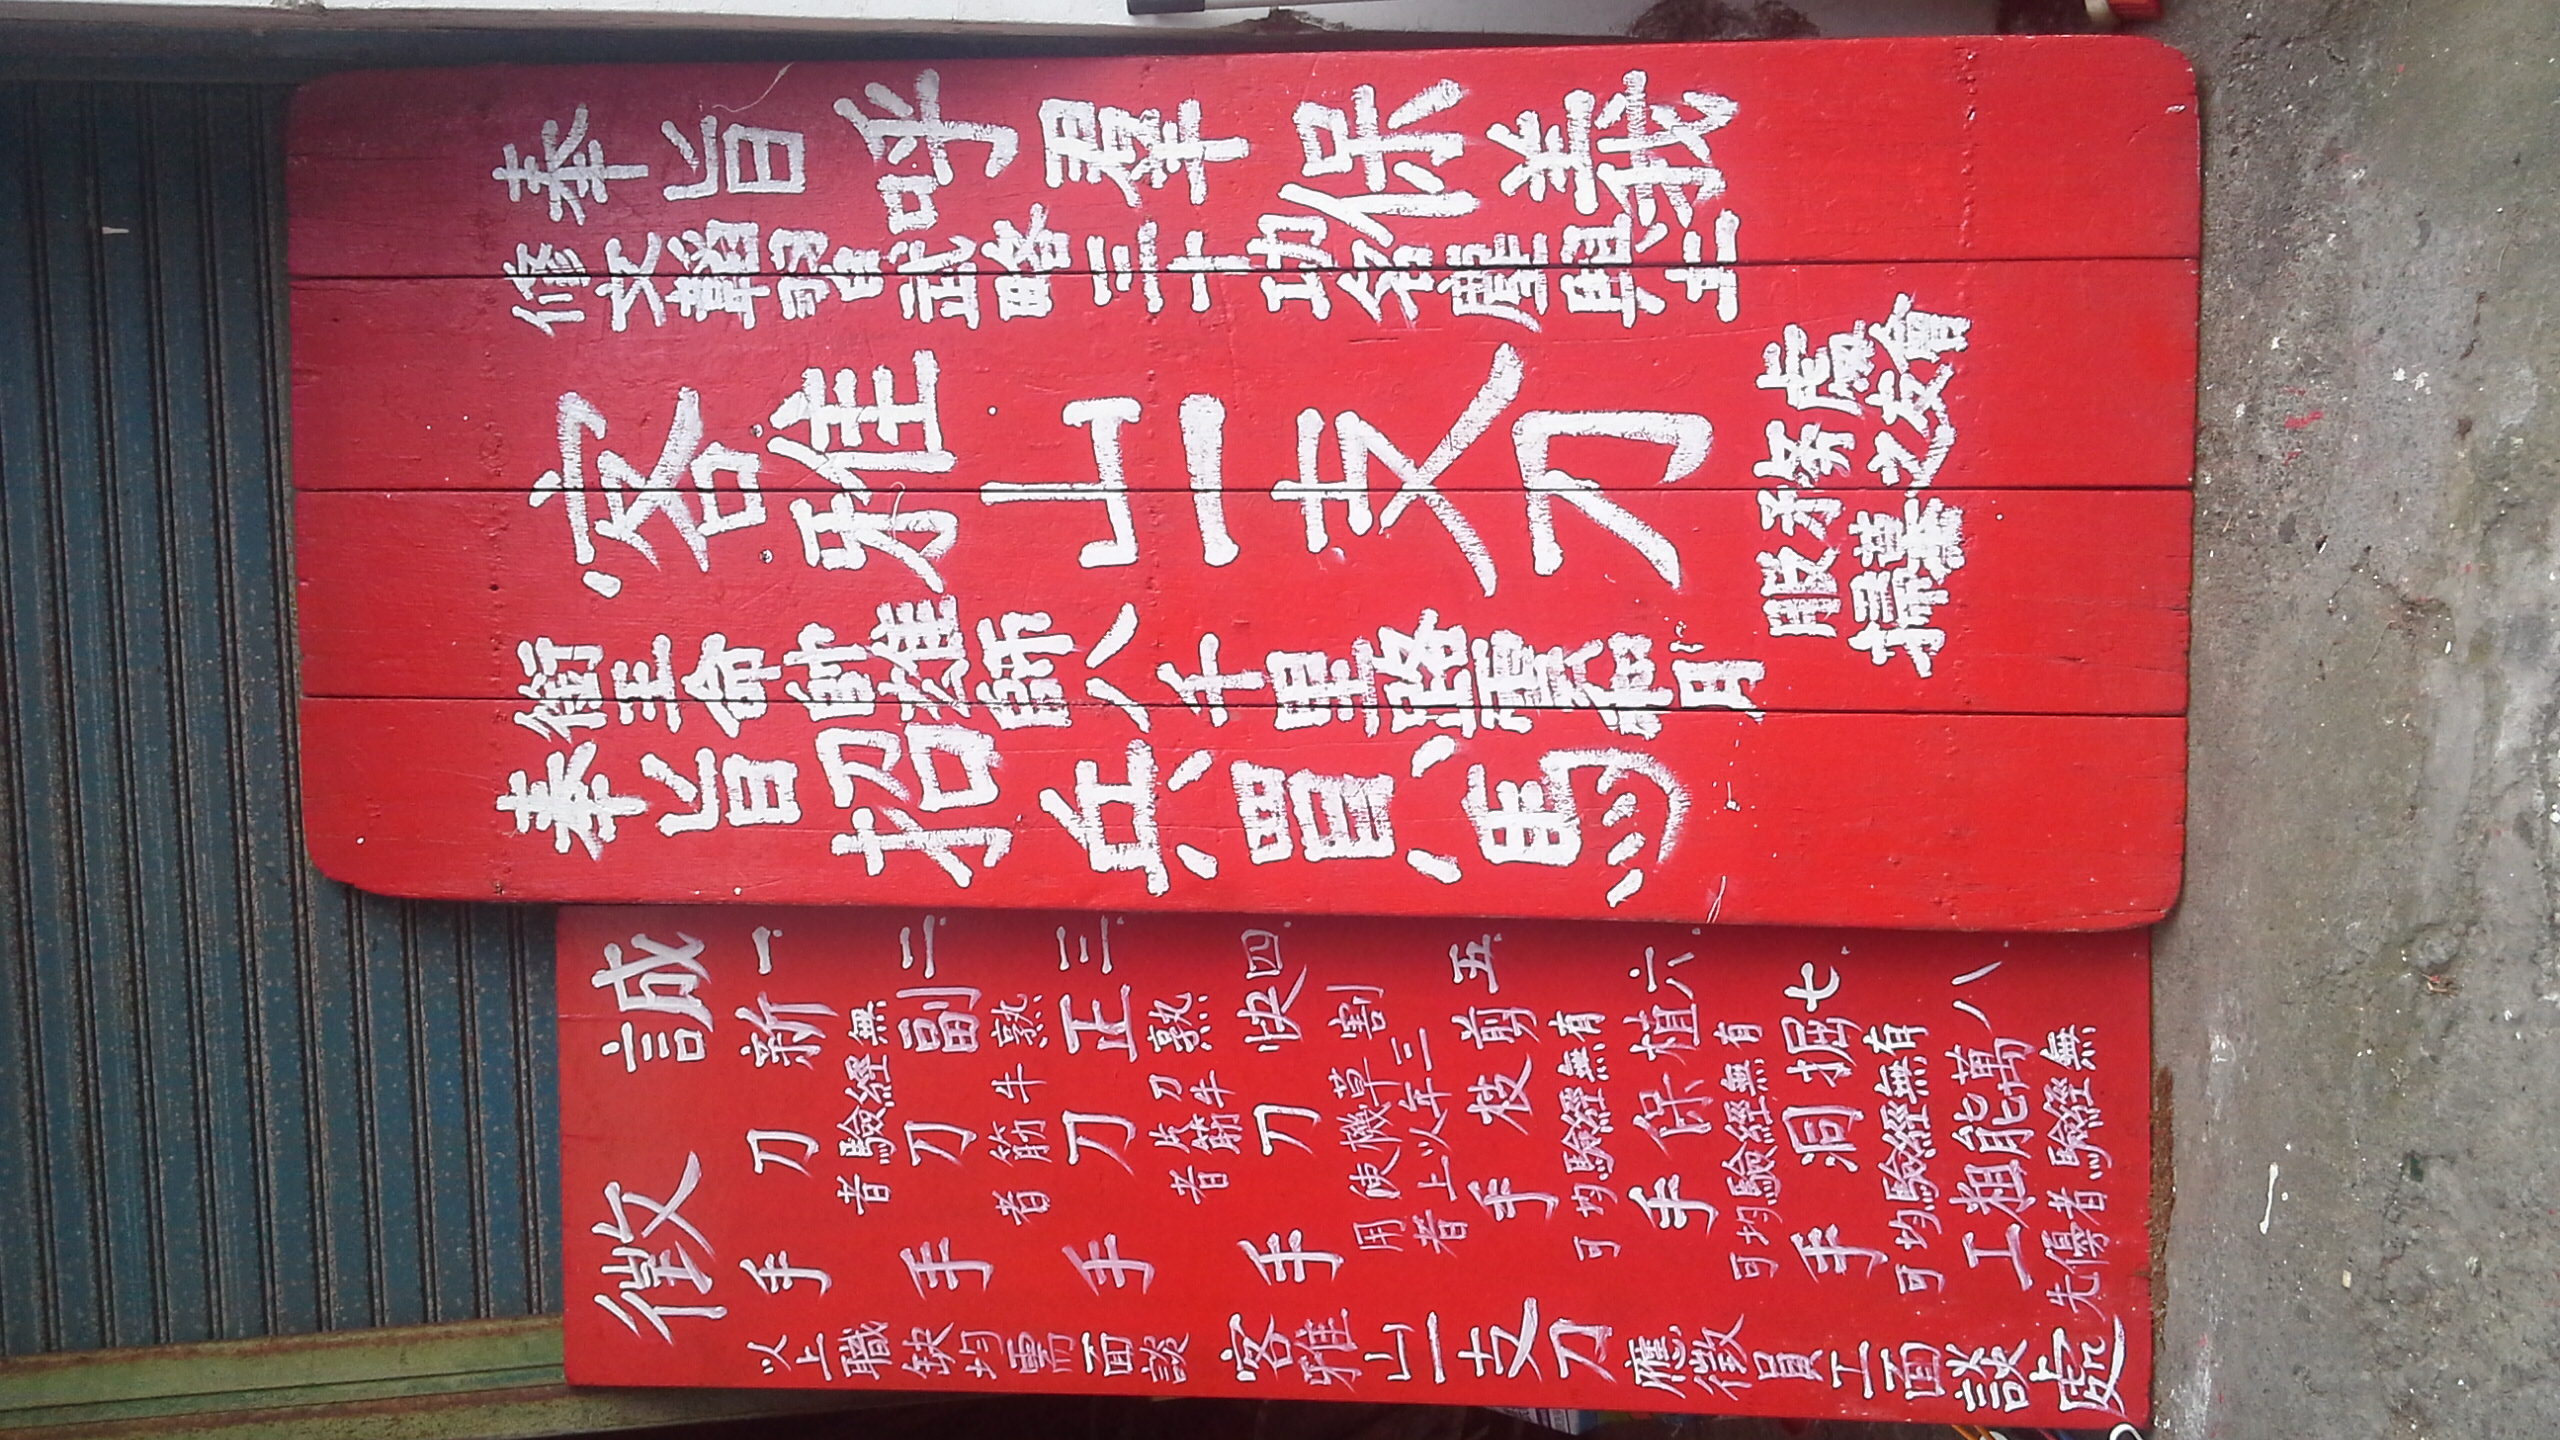 奉旨呼羣保義
修文韜習武略三十功名塵與土
客雅山一支刀
銜王命帥雄師八千里路雲和月
奉旨招兵買馬
服務處
掃墓之友會
誠徵
一.新刀手
無經驗者
二.副刀手
熟牛筋者
三.正刀手
熟刀片牛筋者
四.快刀手
割草機使用
三年以上者
五.剪枝手
有無經驗均可
六.植保手
有無經驗均可
七.掘洞手
有無經驗均可
八.萬能粗工
無經驗者優先
以上職缺均需面談
客雅山一支刀應徵員工面談處